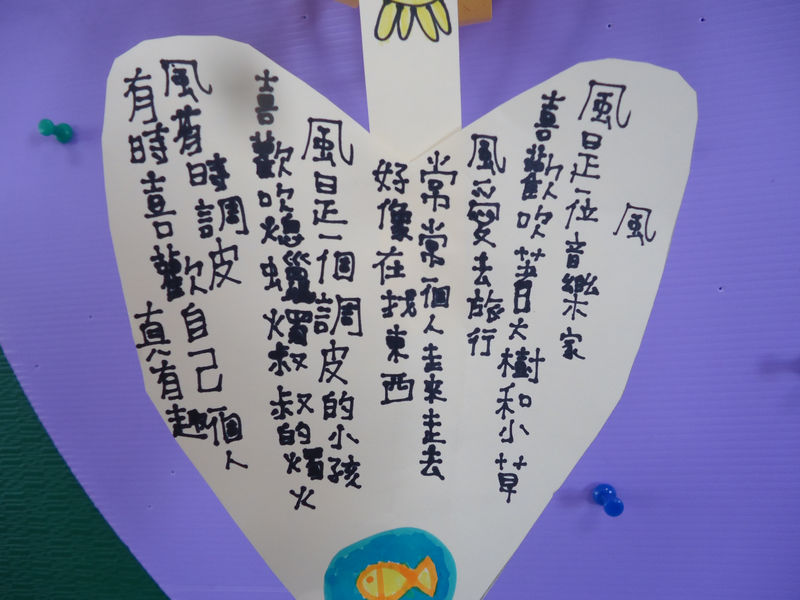 風
風是一位音樂家
喜歡吹著大樹和小草
風愛去旅行
常常一個人走來走去
好像在找東西
風是一個調皮的小孩
喜歡吹熄蠟燭叔叔的燭火
風有時調皮
有時喜歡自己一個人
真有趣